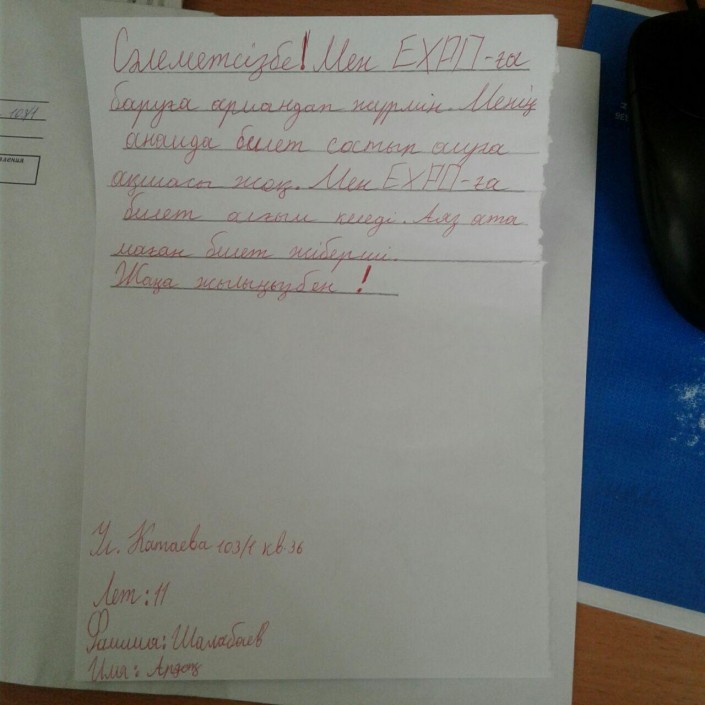 Сәлеметсізбе! Мен EXPO-ға
баруға армандап жүрмін. Менің
анамда билет састып алуға
ақшасы жоқ. Мен EXPO-ға
билет алғым келеді. Аяз ата
маған билет жіберші.
Жаңа жылыңызбен !
Ул. Катаева 103/1 кв. 36
Лет: 11
Фамилиа: Шалабаев
Имя:
104/1